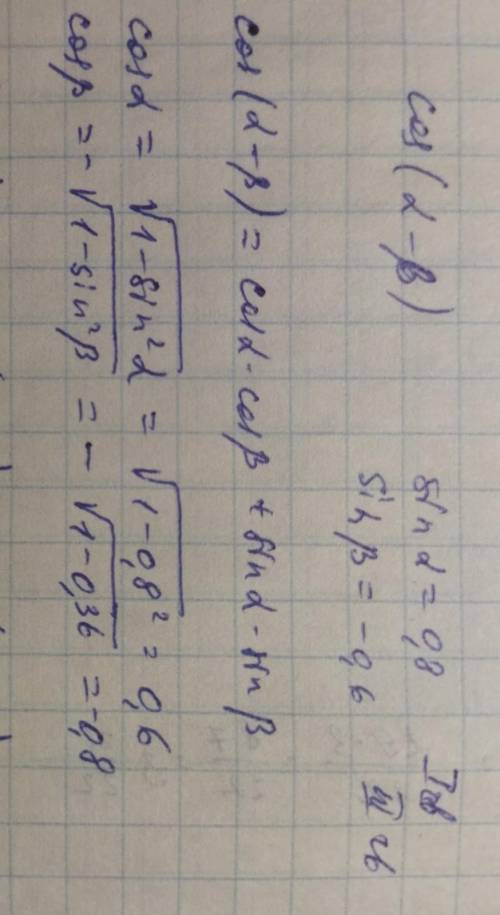 cos(α-β) sin α = 0,8 I чв
sin β = -0,6 III чв
cos(α-β) = cosα·cosβ + sinα·sinβ
cosα = √1-sin²α = √1-0,8² = 0,6
cosβ = -√1-sin²β = -√1-0,36 = -0,8